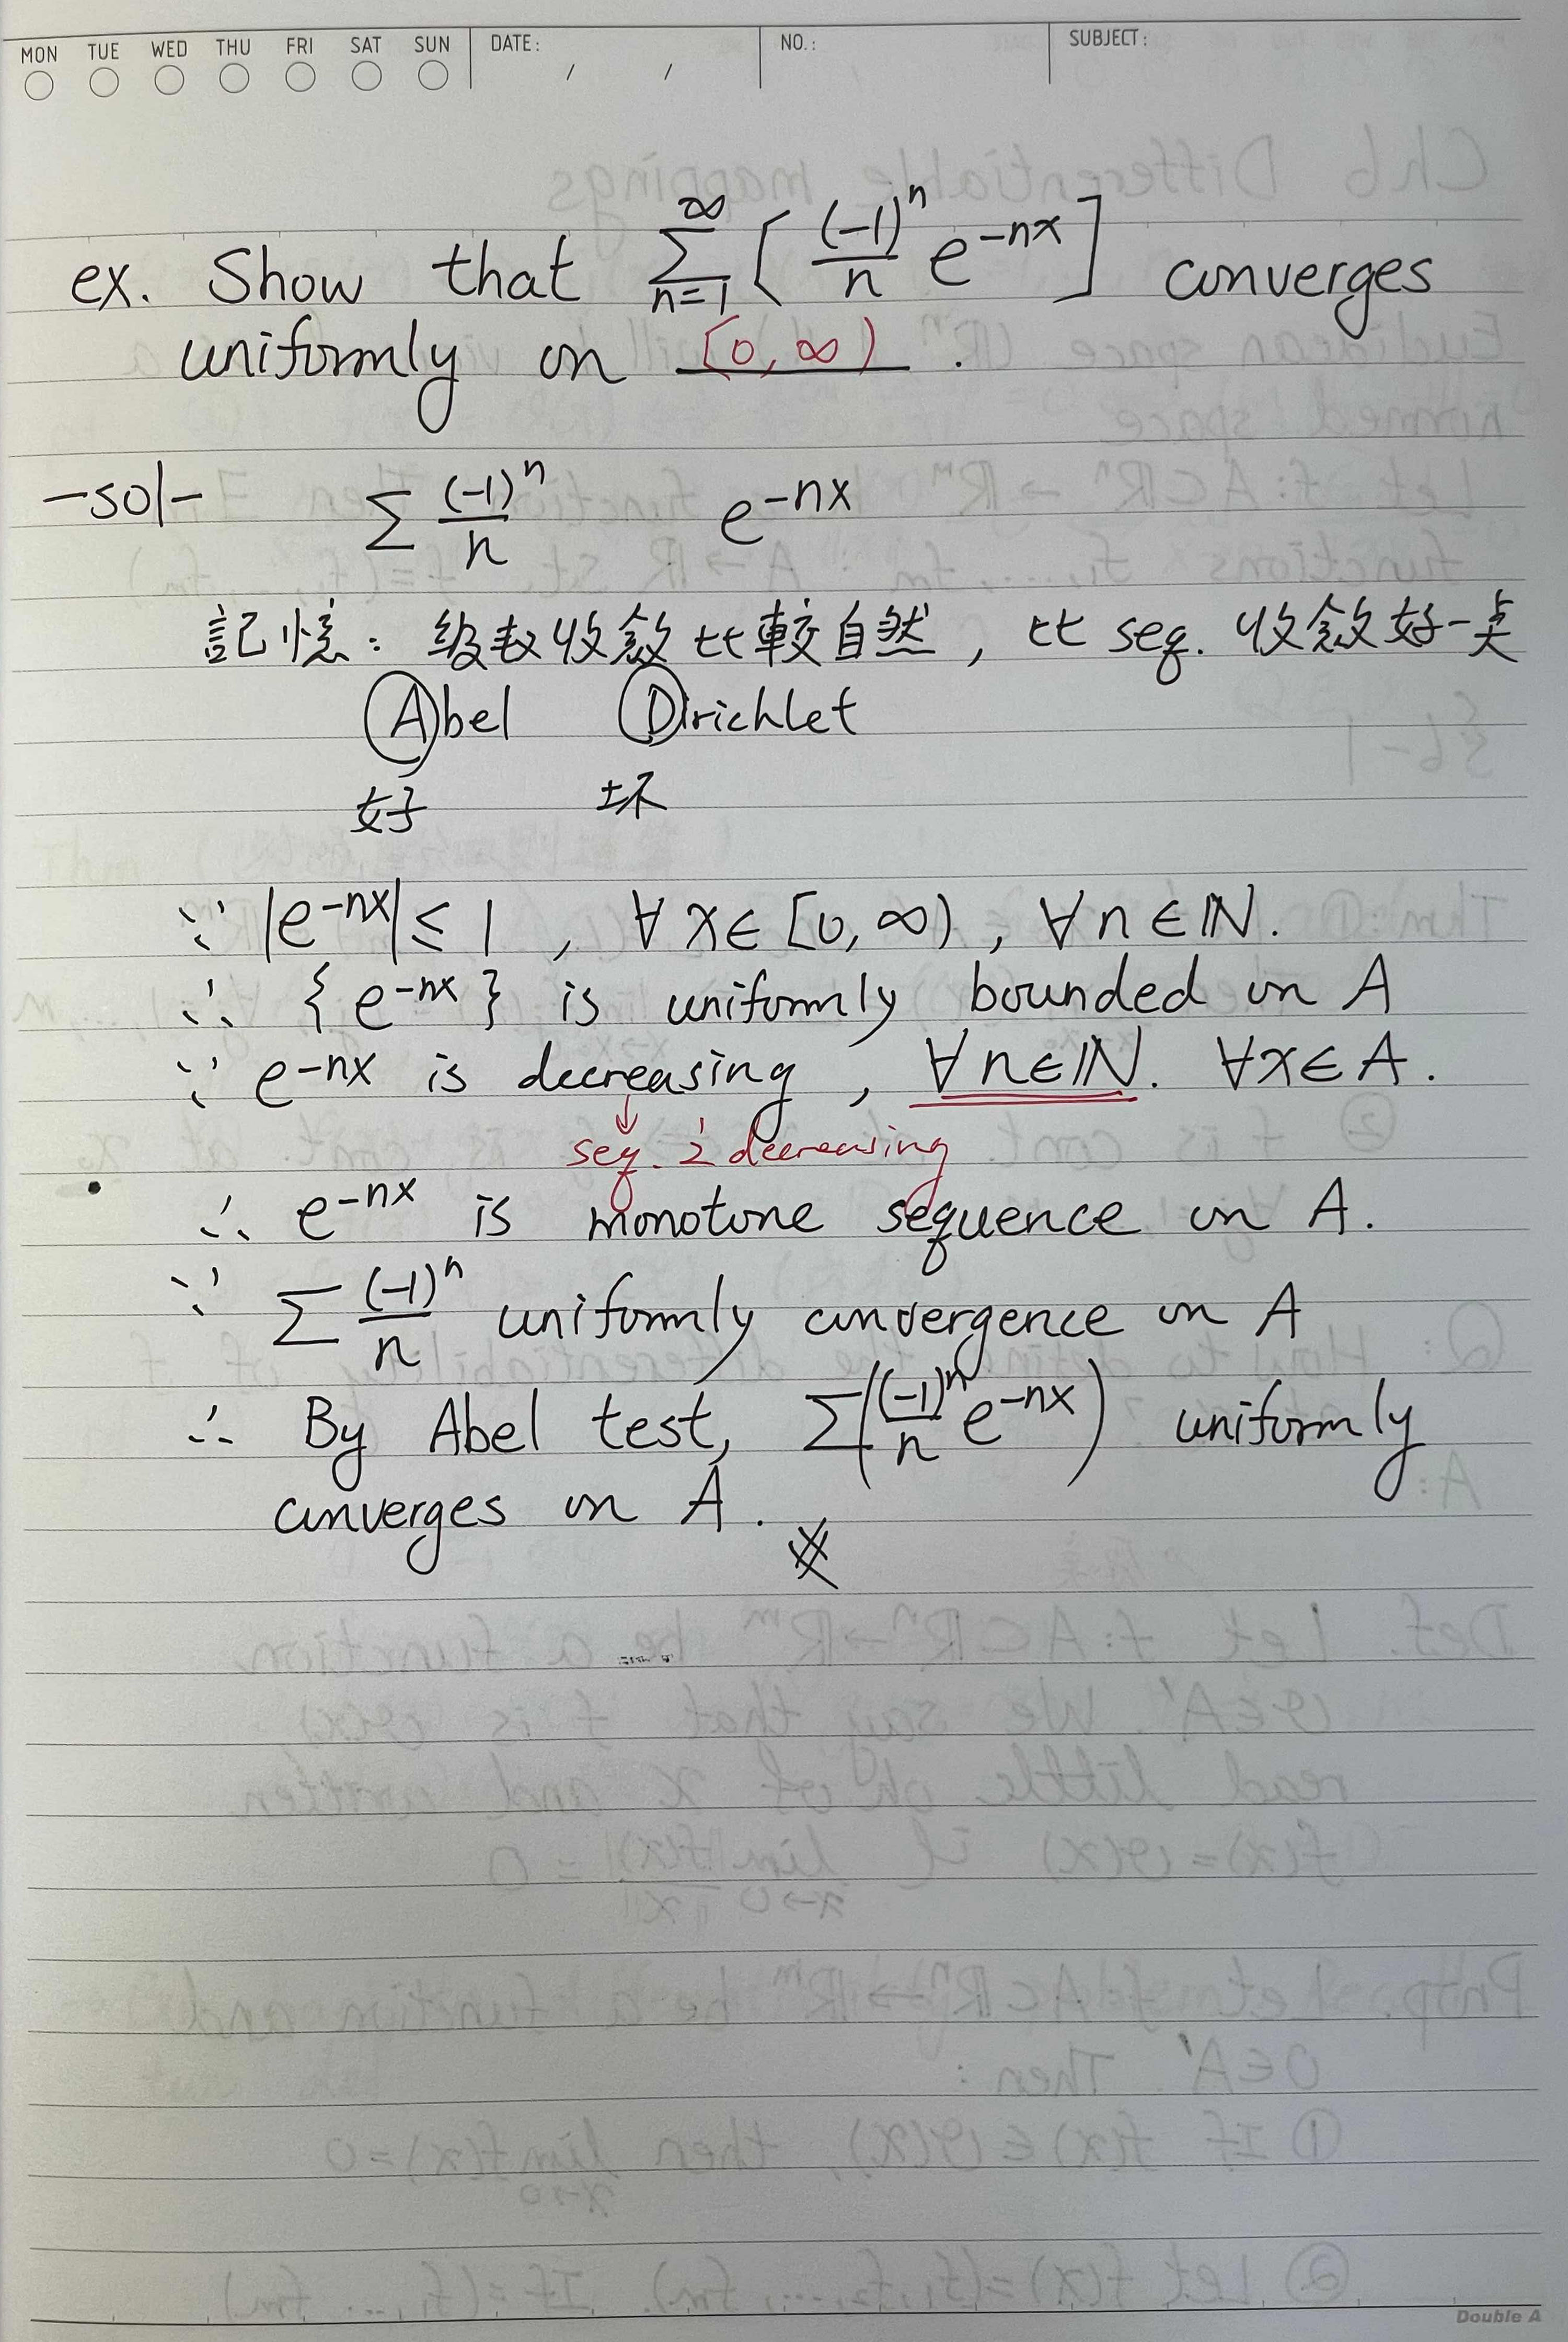 MON TUE WED THU FRI SAT SUN DATE: / / NO.: SUBJECT:
ex. Show that $\sum_{n=1}^{\infty} \left[ \frac{(-1)^n}{n} e^{-nx} \right]$ converges
uniformly on [0, ∞).
-sol- $\sum \frac{(-1)^n}{n}$ $e^{-nx}$
記憶: 级数收敛比較自然, 比 seq. 收敛好一点
Abel Dirichlet
好 坏
∵ $|e^{-nx}| \leq 1$, ∀ x ∈ [0, ∞), ∀ n ∈ ℕ.
∴ $\{e^{-nx}\}$ is uniformly bounded on A
∵ $e^{-nx}$ is decreasing, ∀ n ∈ ℕ. ∀ x ∈ A.
↓
seq. is decreasing
∴ $e^{-nx}$ is monotone sequence on A.
∵ $\sum \frac{(-1)^n}{n}$ uniformly convergence on A
∴ By Abel test, $\sum \left( \frac{(-1)^n}{n} e^{-nx} \right)$ uniformly
converges on A.
Double A